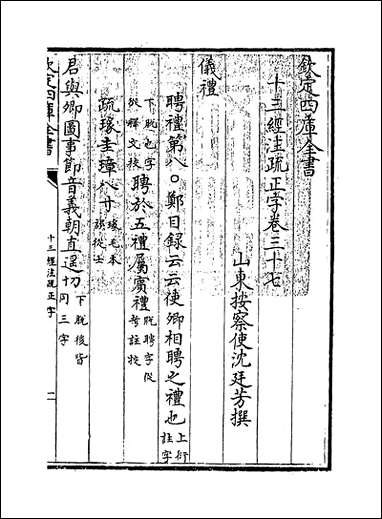 欽定四庫全書
十三經注疏正字卷三十七
山東按察使沈廷芳撰
儀禮
聘禮第八○鄭目録云云使卿相聘之禮也上衍註字
下脫也字從釋文挍聘於五禮屬賓禮脫聘字從考註挍
疏瑑圭璋八寸瑑毛本誤從土
君與卿圖事節音義朝直遥切下脫後皆同三字
欽定四庫全書
十三經注疏正字